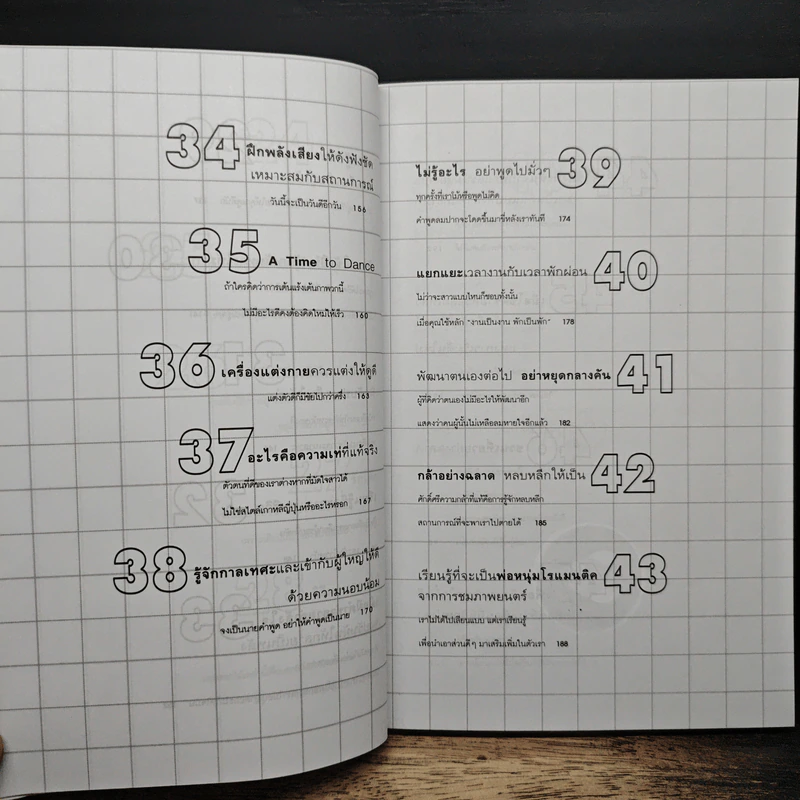 34 ฝึกพลังเสียงให้ดังฟังชัด
เหมาะสมกับสถานการณ์
วันนี้จะเป็นวันดีอีกวัน 156
35 A Time to Dance
ถ้าใครคิดว่าการเต้นแร้งเต้นกาพวกนี้
ไม่มีอะไรดีคงต้องคิดใหม่ให้เร็ว 160
36 เครื่องแต่งกายควรแต่งให้ดูดี
แต่งตัวดีก็มีชัยไปกว่าครึ่ง 163
37 อะไรคือความเท่ที่แท้จริง
ตัวตนที่ดีของเราต่างหากที่มัดใจสาวได้
ไม่ใช่สไตล์เกาหลีญี่ปุ่นหรืออะไรหรอก 167
38 รู้จักกาลเทศะและเข้ากับผู้ใหญ่ให้ดี
ด้วยความนอบน้อม
จงเป็นนายคำพูด อย่าให้คำพูดเป็นนาย 170
ไม่รู้อะไร อย่าพูดไปมั่วๆ 39
ทุกครั้งที่เราโม้หรือพูดไม่คิด
คำพูดลมปากจะโดดขึ้นมาขี่หลังเราทันที 174
แยกแยะเวลางานกับเวลาพักผ่อน 40
ไม่ว่าจะสาวแบบไหนก็ชอบทั้งนั้น
เมื่อคุณใช้หลัก "งานเป็นงาน พักเป็นพัก" 178
พัฒนาตนเองต่อไป อย่าหยุดกลางคัน 41
ผู้ที่คิดว่าตนเองไม่มีอะไรให้พัฒนาอีก
แสดงว่าคนผู้นั้นไม่เหลือลมหายใจอีกแล้ว 182
กล้าอย่างฉลาด หลบหลีกให้เป็น 42
ศักดิ์ศรีความกล้าที่แท้คือการรู้จักหลบหลีก
สถานการณ์ที่จะพาเราไปตายได้ 185
เรียนรู้ที่จะเป็นพ่อหนุ่มโรแมนติค 43
จากการชมภาพยนตร์
เราไม่ได้ไปเลียนแบบ แต่เราเรียนรู้
เพื่อนำเอาส่วนดีๆ มาเสริมเพิ่มในตัวเรา 188